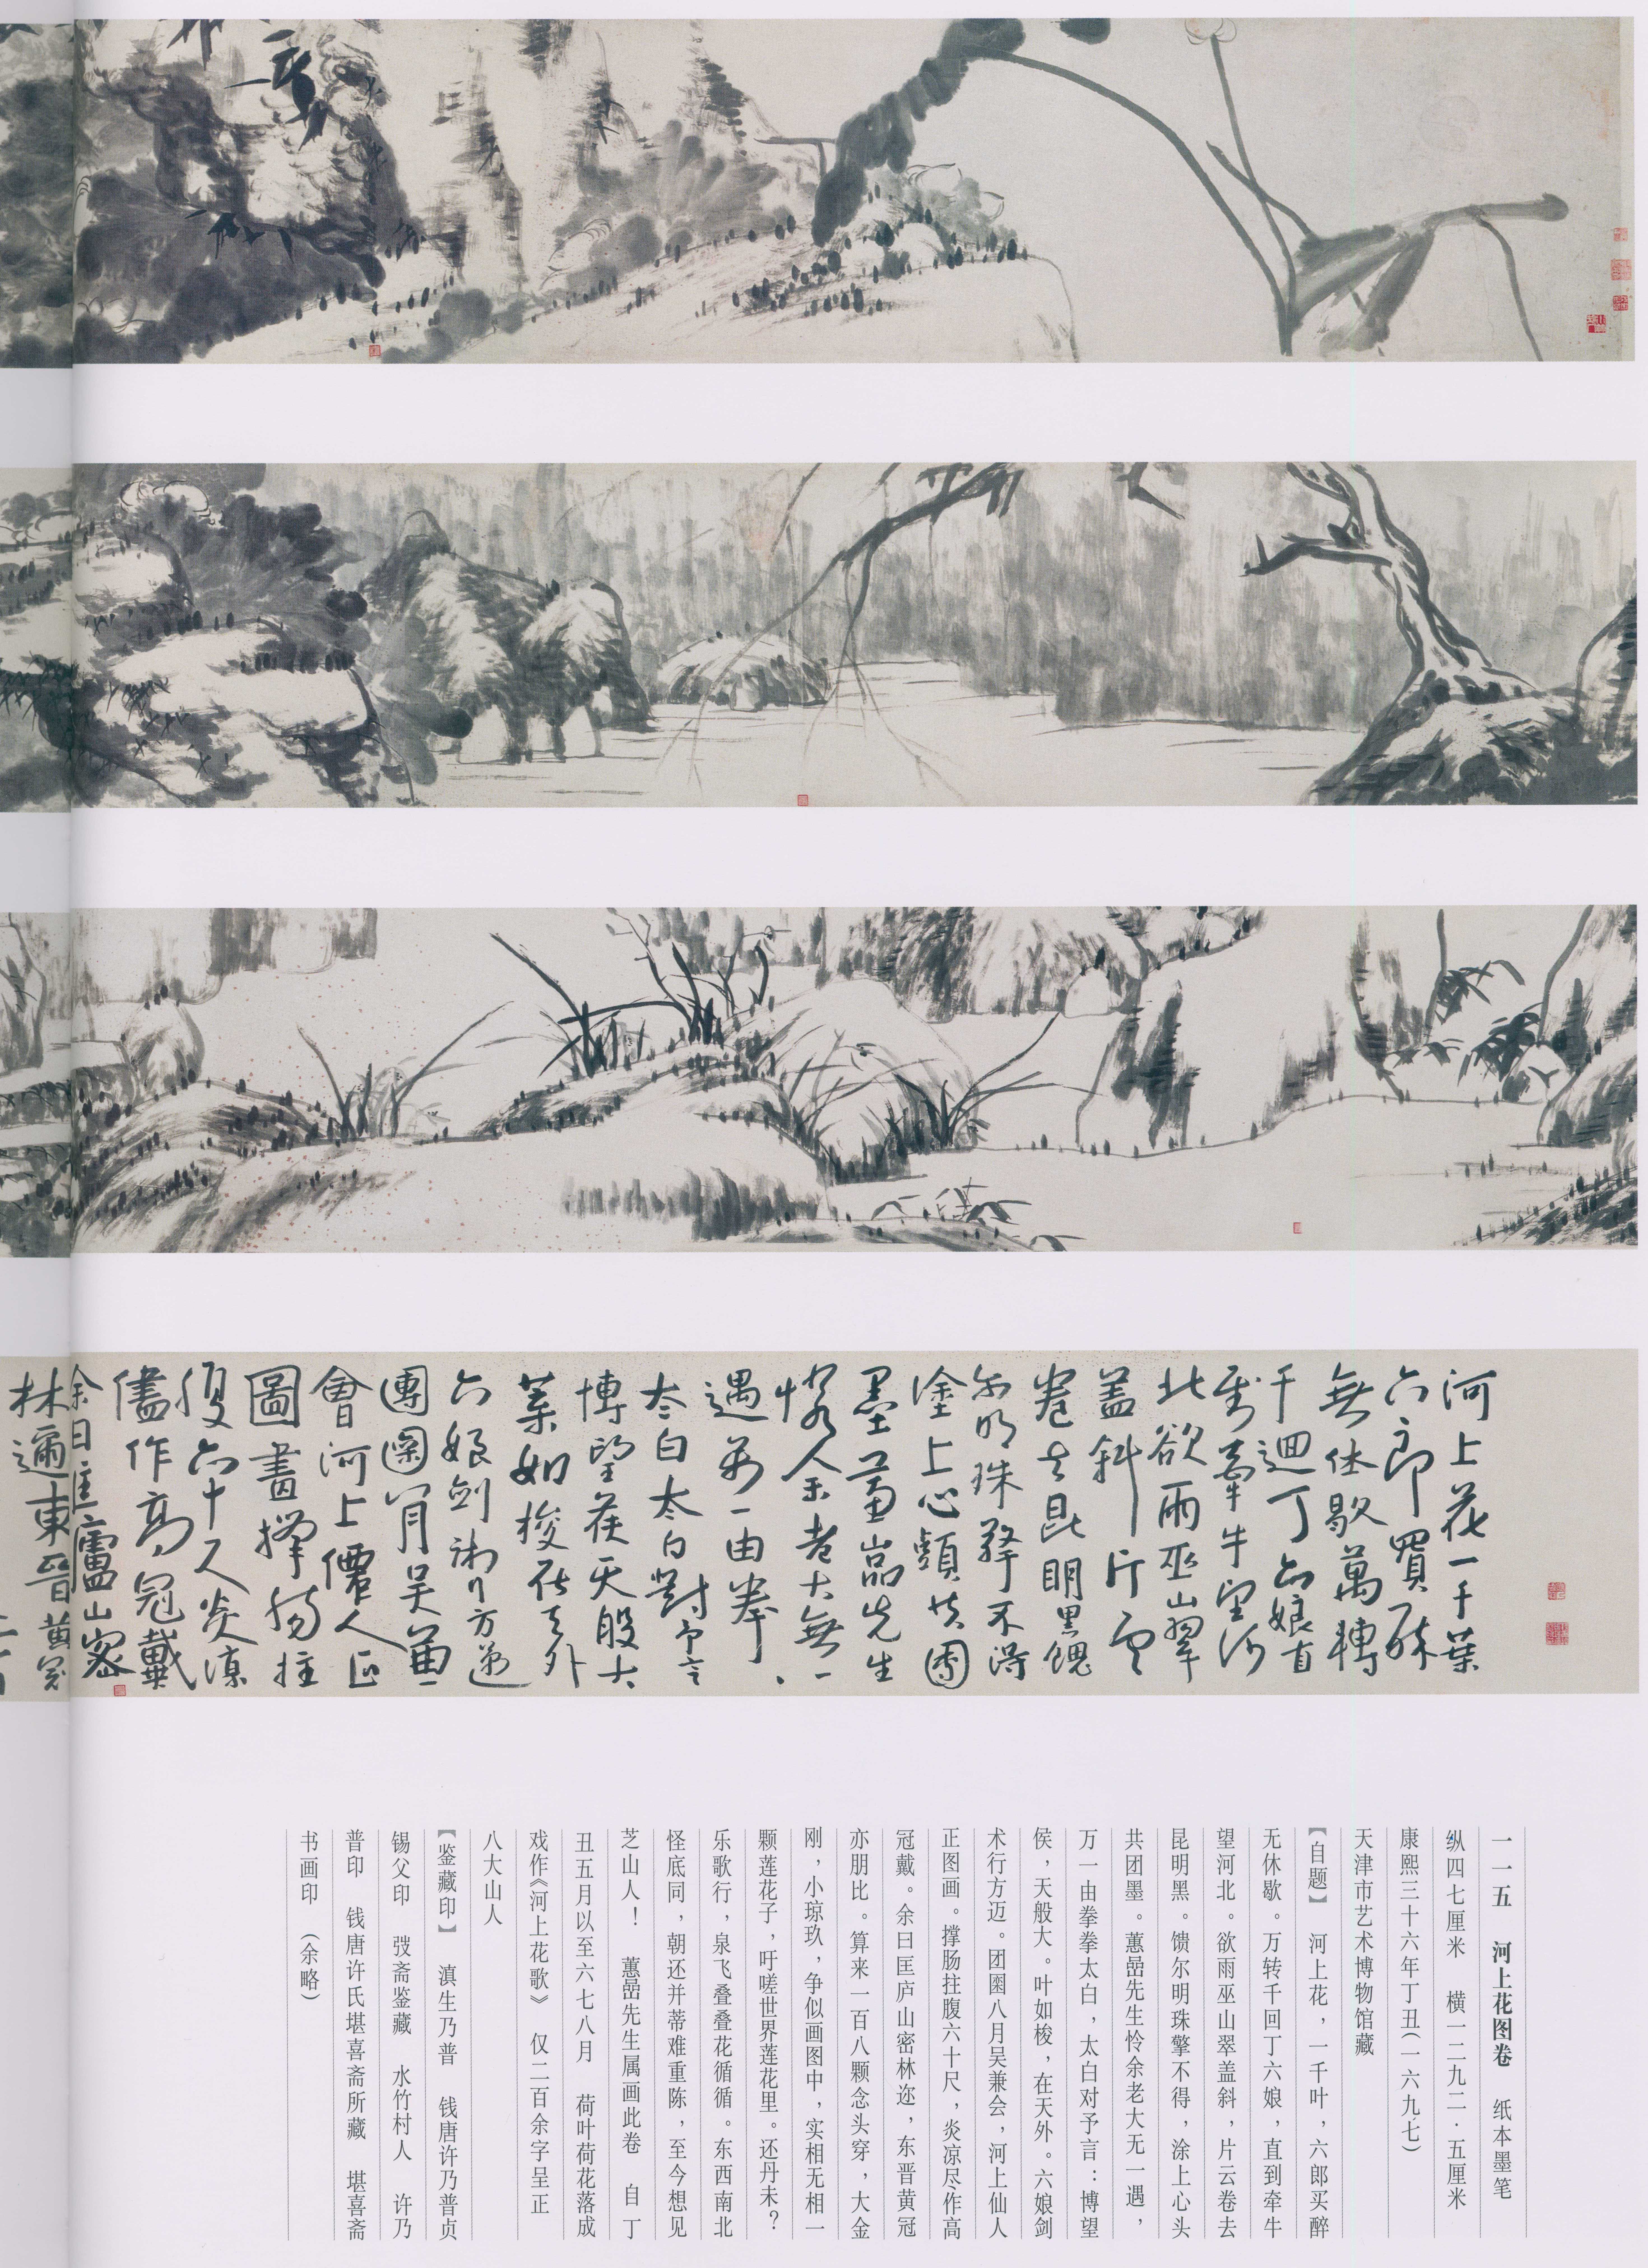 河上花一千葉
六郎買醉
無休歇萬轉
千迴丁六娘直
到牽牛望河
北欲雨巫山翠
盖斜片雲
卷去昆明黑餽
尔明珠擎不得
塗上心頭共團
墨蕙嵒先生
憐余老大無一
遇萬一由拳、
太白太白對予言
博望矦天般大
葉如梭在天外
六娘剑術行方邁
團圞八月吳兼
會河上僊人正
圖畫撑腸拄
腹六十尺炎凉
儘作高冠戴
余曰匡廬山密
林邇東晉黄冠
一一五 河上花图卷 纸本墨笔
纵四七厘米 横一二九二·五厘米
康熙三十六年丁丑(一六九七)
天津市艺术博物馆藏
【自题】 河上花，一千叶，六郎买醉
无休歇。万转千回丁六娘，直到牵牛
望河北。欲雨巫山翠盖斜，片云卷去
昆明黑。馈尔明珠擎不得，涂上心头
共团墨。蕙嵒先生怜余老大无一遇，
万一由拳拳太白，太白对予言：博望
侯，天般大。叶如梭，在天外。六娘剑
术行方迈。团圞八月吴兼会，河上仙人
正图画。撑肠拄腹六十尺，炎凉尽作高
冠戴。余曰匡庐山密林迩，东晋黄冠
亦朋比。算来一百八颗念头穿，大金
刚，小琼玖，争似画图中，实相无相一
颗莲花子，吁嗟世界莲花里。还丹未？
乐歌行，泉飞叠叠花循循。东西南北
怪底同，朝还并蒂难重陈，至今想见
芝山人！ 蕙嵒先生属画此卷 自丁
丑五月以至六七八月 荷叶荷花落成
戏作《河上花歌》 仅二百余字呈正
八大山人
【鉴藏印】 滇生乃普 钱唐许乃普贞
锡父印 弢斋鉴藏 水竹村人 许乃
普印 钱唐许氏堪喜斋所藏 堪喜斋
书画印 (余略)